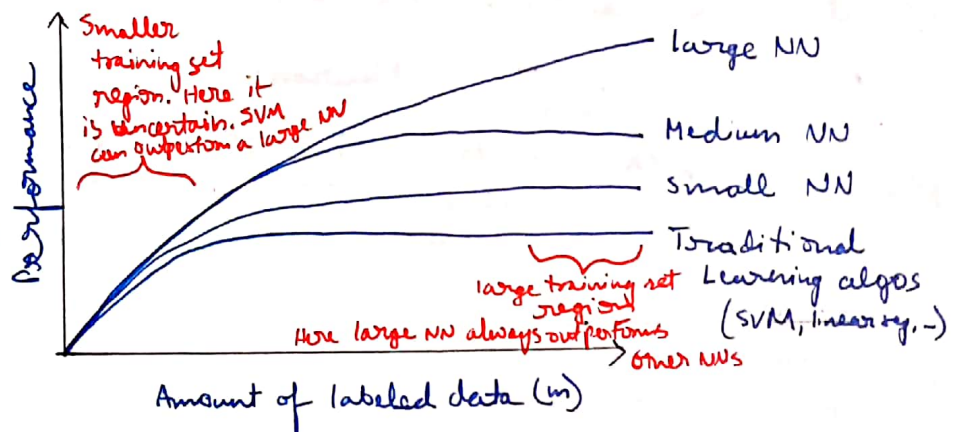 Smaller
training set
region. Here it
is uncertain. SVM
can outperform a large NN
Performance
large NN
Medium NN
Small NN
Traditional
Learning algos
(SVM, linear reg, ..)
large training set
region
Here large NN always outperforms
other NNs
Amount of labeled data (m)